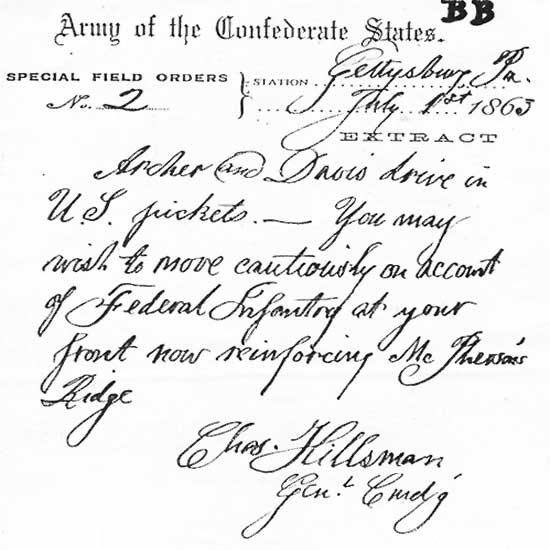 BB
Army of the Confederate States.
SPECIAL FIELD ORDERS
No. 2
STATION Gettysburg, Pa.
July 1st 1863
EXTRACT
Archer and Davis drive in
U.S. pickets. — You may
wish to move cautiously on account
of Federal Infantry at your
front now reinforcing McPherson's
Ridge
Chas. Hillsman
Gen'l Cmd'g